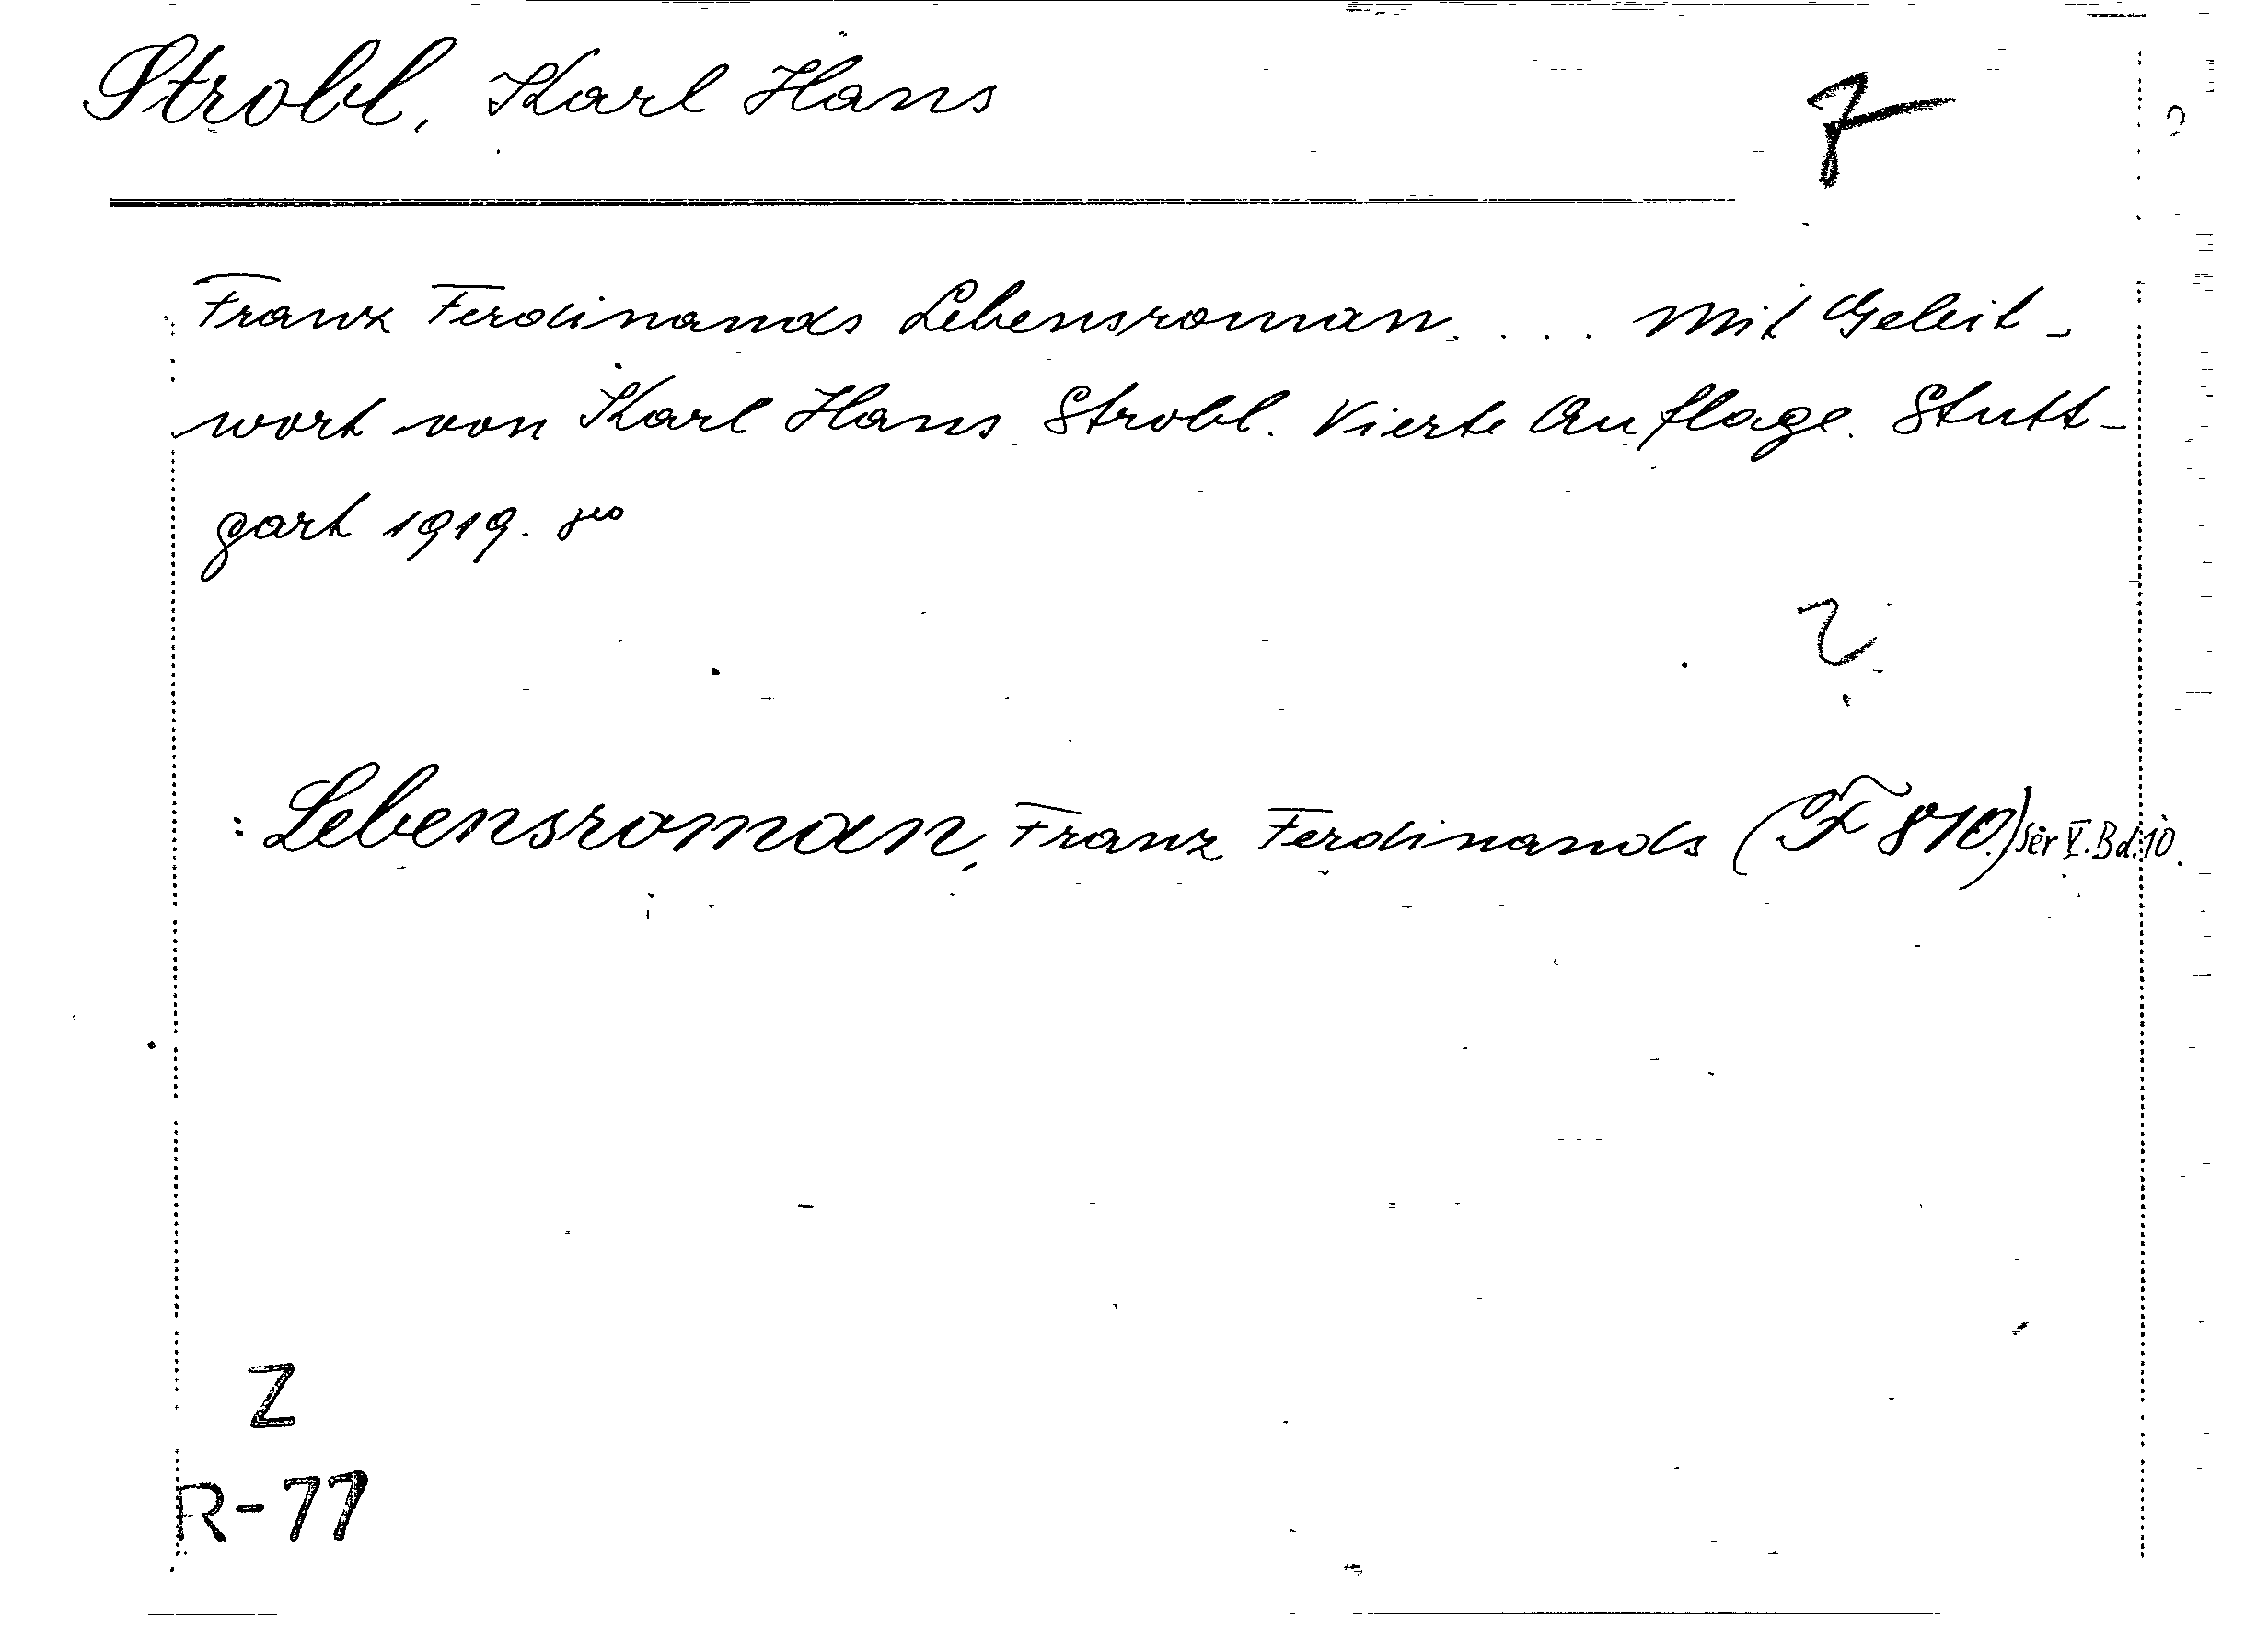 Strobl, Karl Hans
Franz Ferdinands Lebensroman. . . . Mit Geleit-
wort von Karl Hans Strobl. Vierte Auflage. Stutt-
gart 1919. 8°
: Lebensroman, Franz Ferdinands (F 810.) Ser V. Bd. 10.
Z
R-77